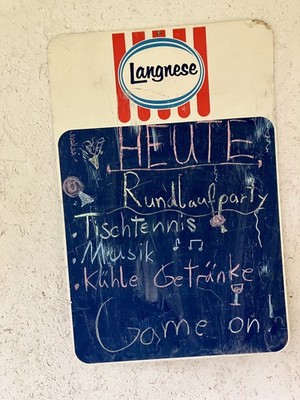 Langnese
HEUTE
Rundlaufparty
• Tischtennis
• Musik
• Kühle Getränke
Game on!